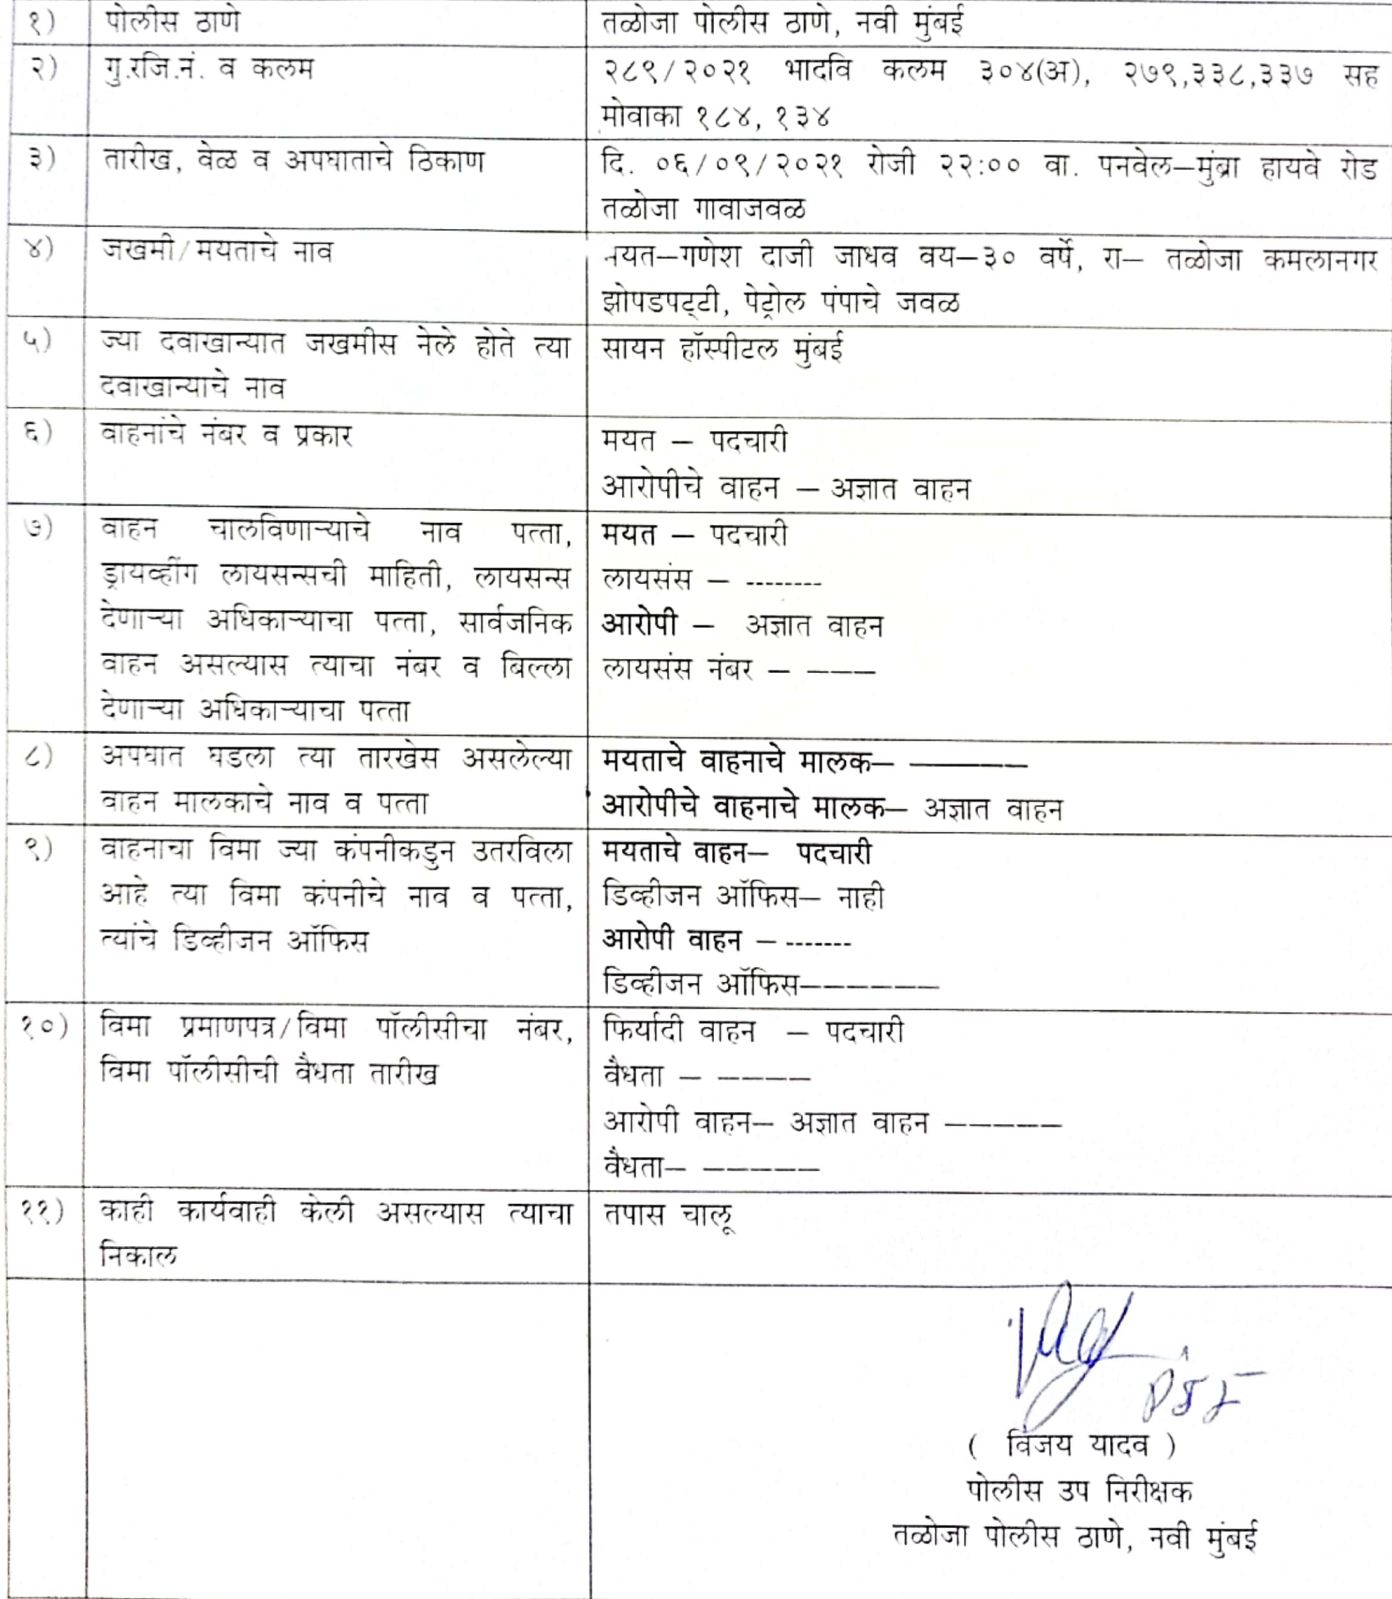 १) पोलीस ठाणे तळोजा पोलीस ठाणे, नवी मुंबई
२) गु.रजि.नं. व कलम २८९/२०२१ भादवि कलम ३०४(अ), २७९,३३८,३३७ सह
मोवाका १८४, १३४
३) तारीख, वेळ व अपघाताचे ठिकाण दि. ०६/०९/२०२१ रोजी २२:०० वा. पनवेल–मुंब्रा हायवे रोड
तळोजा गावाजवळ
४) जखमी/मयताचे नाव मयत–गणेश दाजी जाधव वय–३० वर्षे, रा– तळोजा कमलानगर
झोपडपट्टी, पेट्रोल पंपाचे जवळ
५) ज्या दवाखान्यात जखमीस नेले होते त्या
दवाखान्याचे नाव
सायन हॉस्पीटल मुंबई
६) वाहनांचे नंबर व प्रकार
मयत – पदचारी
आरोपीचे वाहन – अज्ञात वाहन
७) वाहन चालविणाऱ्याचे नाव पत्ता,
ड्रायव्हींग लायसन्सची माहिती, लायसन्स
देणाऱ्या अधिकाऱ्याचा पत्ता, सार्वजनिक
वाहन असल्यास त्याचा नंबर व बिल्ला
देणाऱ्या अधिकाऱ्याचा पत्ता
मयत – पदचारी
लायसंस – --------
आरोपी – अज्ञात वाहन
लायसंस नंबर – –––
८) अपघात घडला त्या तारखेस असलेल्या
वाहन मालकाचे नाव व पत्ता
मयताचे वाहनाचे मालक– –––––
आरोपीचे वाहनाचे मालक– अज्ञात वाहन
९) वाहनाचा विमा ज्या कंपनीकडुन उतरविला
आहे त्या विमा कंपनीचे नाव व पत्ता,
त्यांचे डिव्हीजन ऑफिस
मयताचे वाहन– पदचारी
डिव्हीजन ऑफिस– नाही
आरोपी वाहन – -------
डिव्हीजन ऑफिस––––––
१०) विमा प्रमाणपत्र/विमा पॉलीसीचा नंबर,
विमा पॉलीसीची वैधता तारीख
फिर्यादी वाहन – पदचारी
वैधता – ––––
आरोपी वाहन– अज्ञात वाहन –––––
वैधता– –––––
११) काही कार्यवाही केली असल्यास त्याचा
निकाल
तपास चालू
PSI
( विजय यादव )
पोलीस उप निरीक्षक
तळोजा पोलीस ठाणे, नवी मुंबई